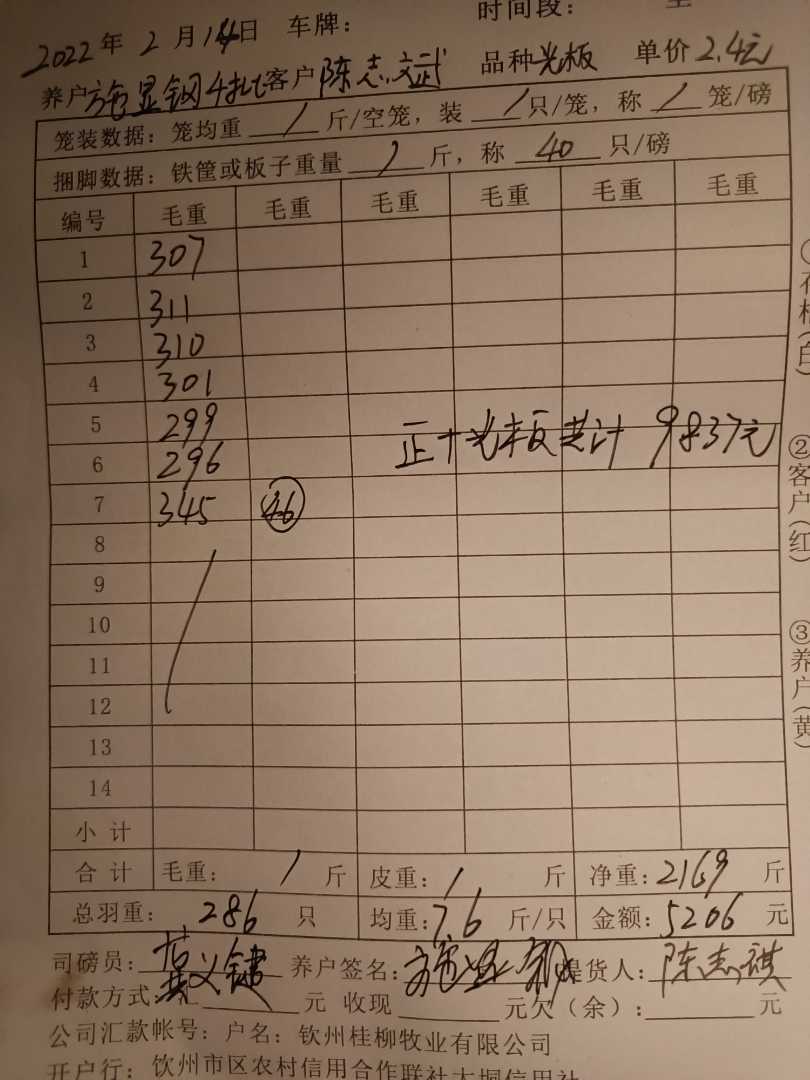 时间段：
2022年 2 月 14日 车牌：
养户 施显钢 客户 陈志武 品种 光板 单价 2.4元
笼装数据：笼均重 / 斤/空笼，装 / 只/笼，称 / 笼/磅
捆脚数据：铁筐或板子重量 / 斤，称 40 只/磅
编号 毛重 毛重 毛重 毛重 毛重 毛重
1 307
2 311
3 310
4 301
5 299
正+光板共计 9837元
6 296
7 345 46
8
9
10
11
12
13
14
小计
合计 毛重： / 斤 皮重： / 斤 净重：2169 斤
总羽重： 286 只 均重：7.6 斤/只 金额：5206 元
司磅员： 义键 养户签名：施显钢 提货人：陈志祺
付款方式 元 收现 元欠（余）： 元
公司汇款帐号：户名：钦州桂柳牧业有限公司
开户行：钦州市区农村信用合作联社大垌信用社
②客户（红）
③养户（黄